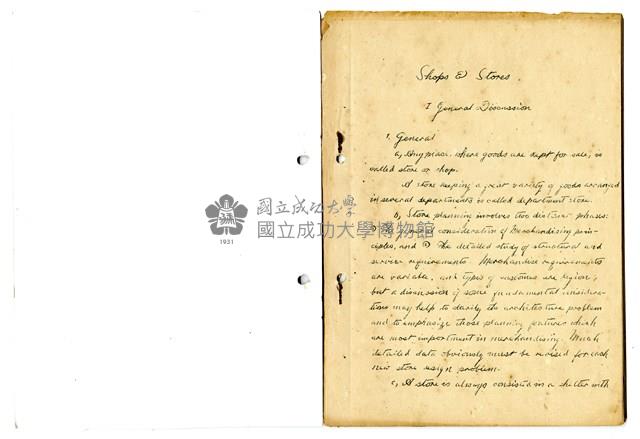 Shops & Stores
I General Discussion
1. General
a, Any place, where goods are kept for sale, is
called store or shop.
A store keeping a great variety of goods arranged
in several departments is called department store.
b, Store planning involves two distinct phases:
consideration of Merchandising prin-
ciples, and ② The detailed study of structural and
service requirements. Merchandise requirements
are variable, and types of customers are legion,
but a discussion of some fundamental considera-
tions may help to clarify the architecture problem
and to emphasize those planning features which
are most important in merchandising. Much
detailed data obviously must be revised for each
new store design problem.
c, A store is always consists in a shelter with
國立成功大學
國立成功大學博物館
1931